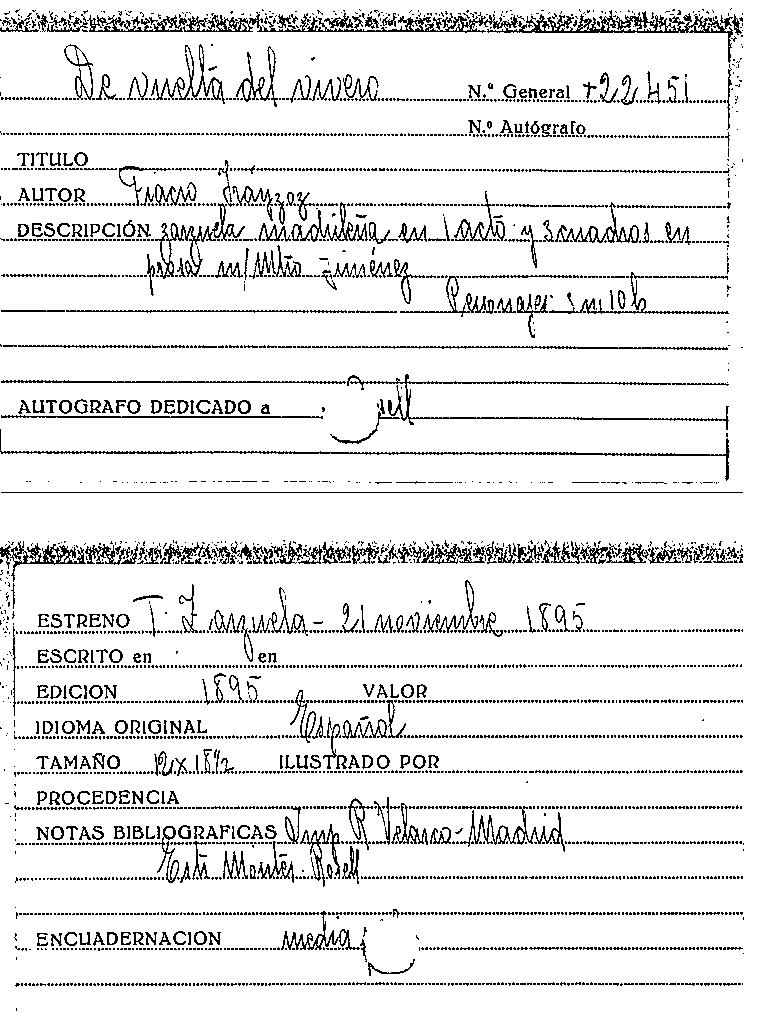 De vuelta del vivero
N.º General +22451
N.º Autógrafo
TITULO
AUTOR Fiacro Irayzoz
DESCRIPCIÓN zarzuela madrileña en 1 acto y 3 cuadros en
prosa m/ Mtro Jiménez
Personajes: 3 m 10 h
AUTOGRAFO DEDICADO a
ESTRENO T. Zarzuela - 21 noviembre 1895
ESCRITO en en
EDICION 1895 VALOR
IDIOMA ORIGINAL Español
TAMAÑO 12 x 18½ ILUSTRADO POR
PROCEDENCIA
NOTAS BIBLIOGRAFICAS Imp. R. Velasco - Madrid
Montes - Rosell
ENCUADERNACION media